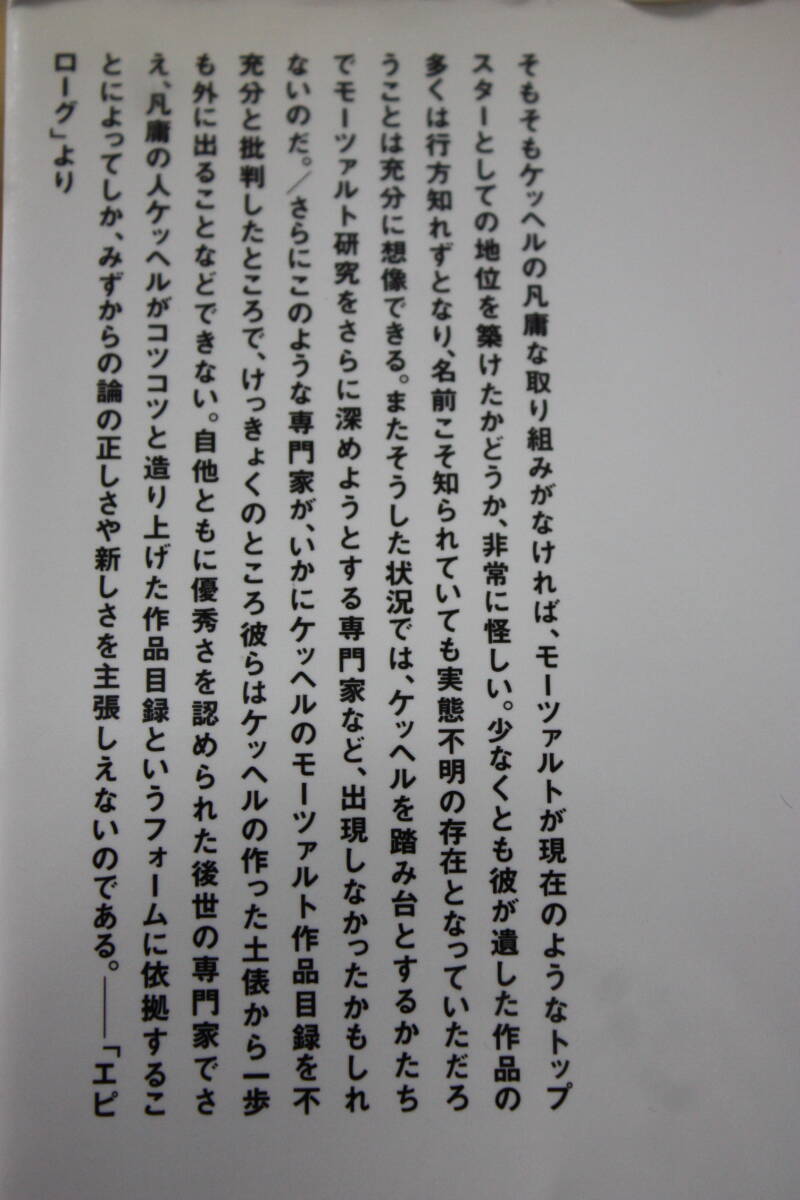 そもそもケッヘルの凡庸な取り組みがなければ、モーツァルトが現在のようなトップ
スターとしての地位を築けたかどうか、非常に怪しい。少なくとも彼が遺した作品の
多くは行方知れずとなり、名前こそ知られていても実態不明の存在となっていただろ
うことは充分に想像できる。またそうした状況では、ケッヘルを踏み台とするかたち
でモーツァルト研究をさらに深めようとする専門家など、出現しなかったかもしれ
ないのだ。／さらにこのような専門家が、いかにケッヘルのモーツァルト作品目録を不
充分と批判したところで、けっきょくのところ彼らはケッヘルの作った土俵から一歩
も外に出ることなどできない。自他ともに優秀さを認められた後世の専門家でさ
え、凡庸の人ケッヘルがコツコツと造り上げた作品目録というフォームに依拠するこ
とによってしか、みずからの論の正しさや新しさを主張しえないのである。――「エピ
ローグ」より